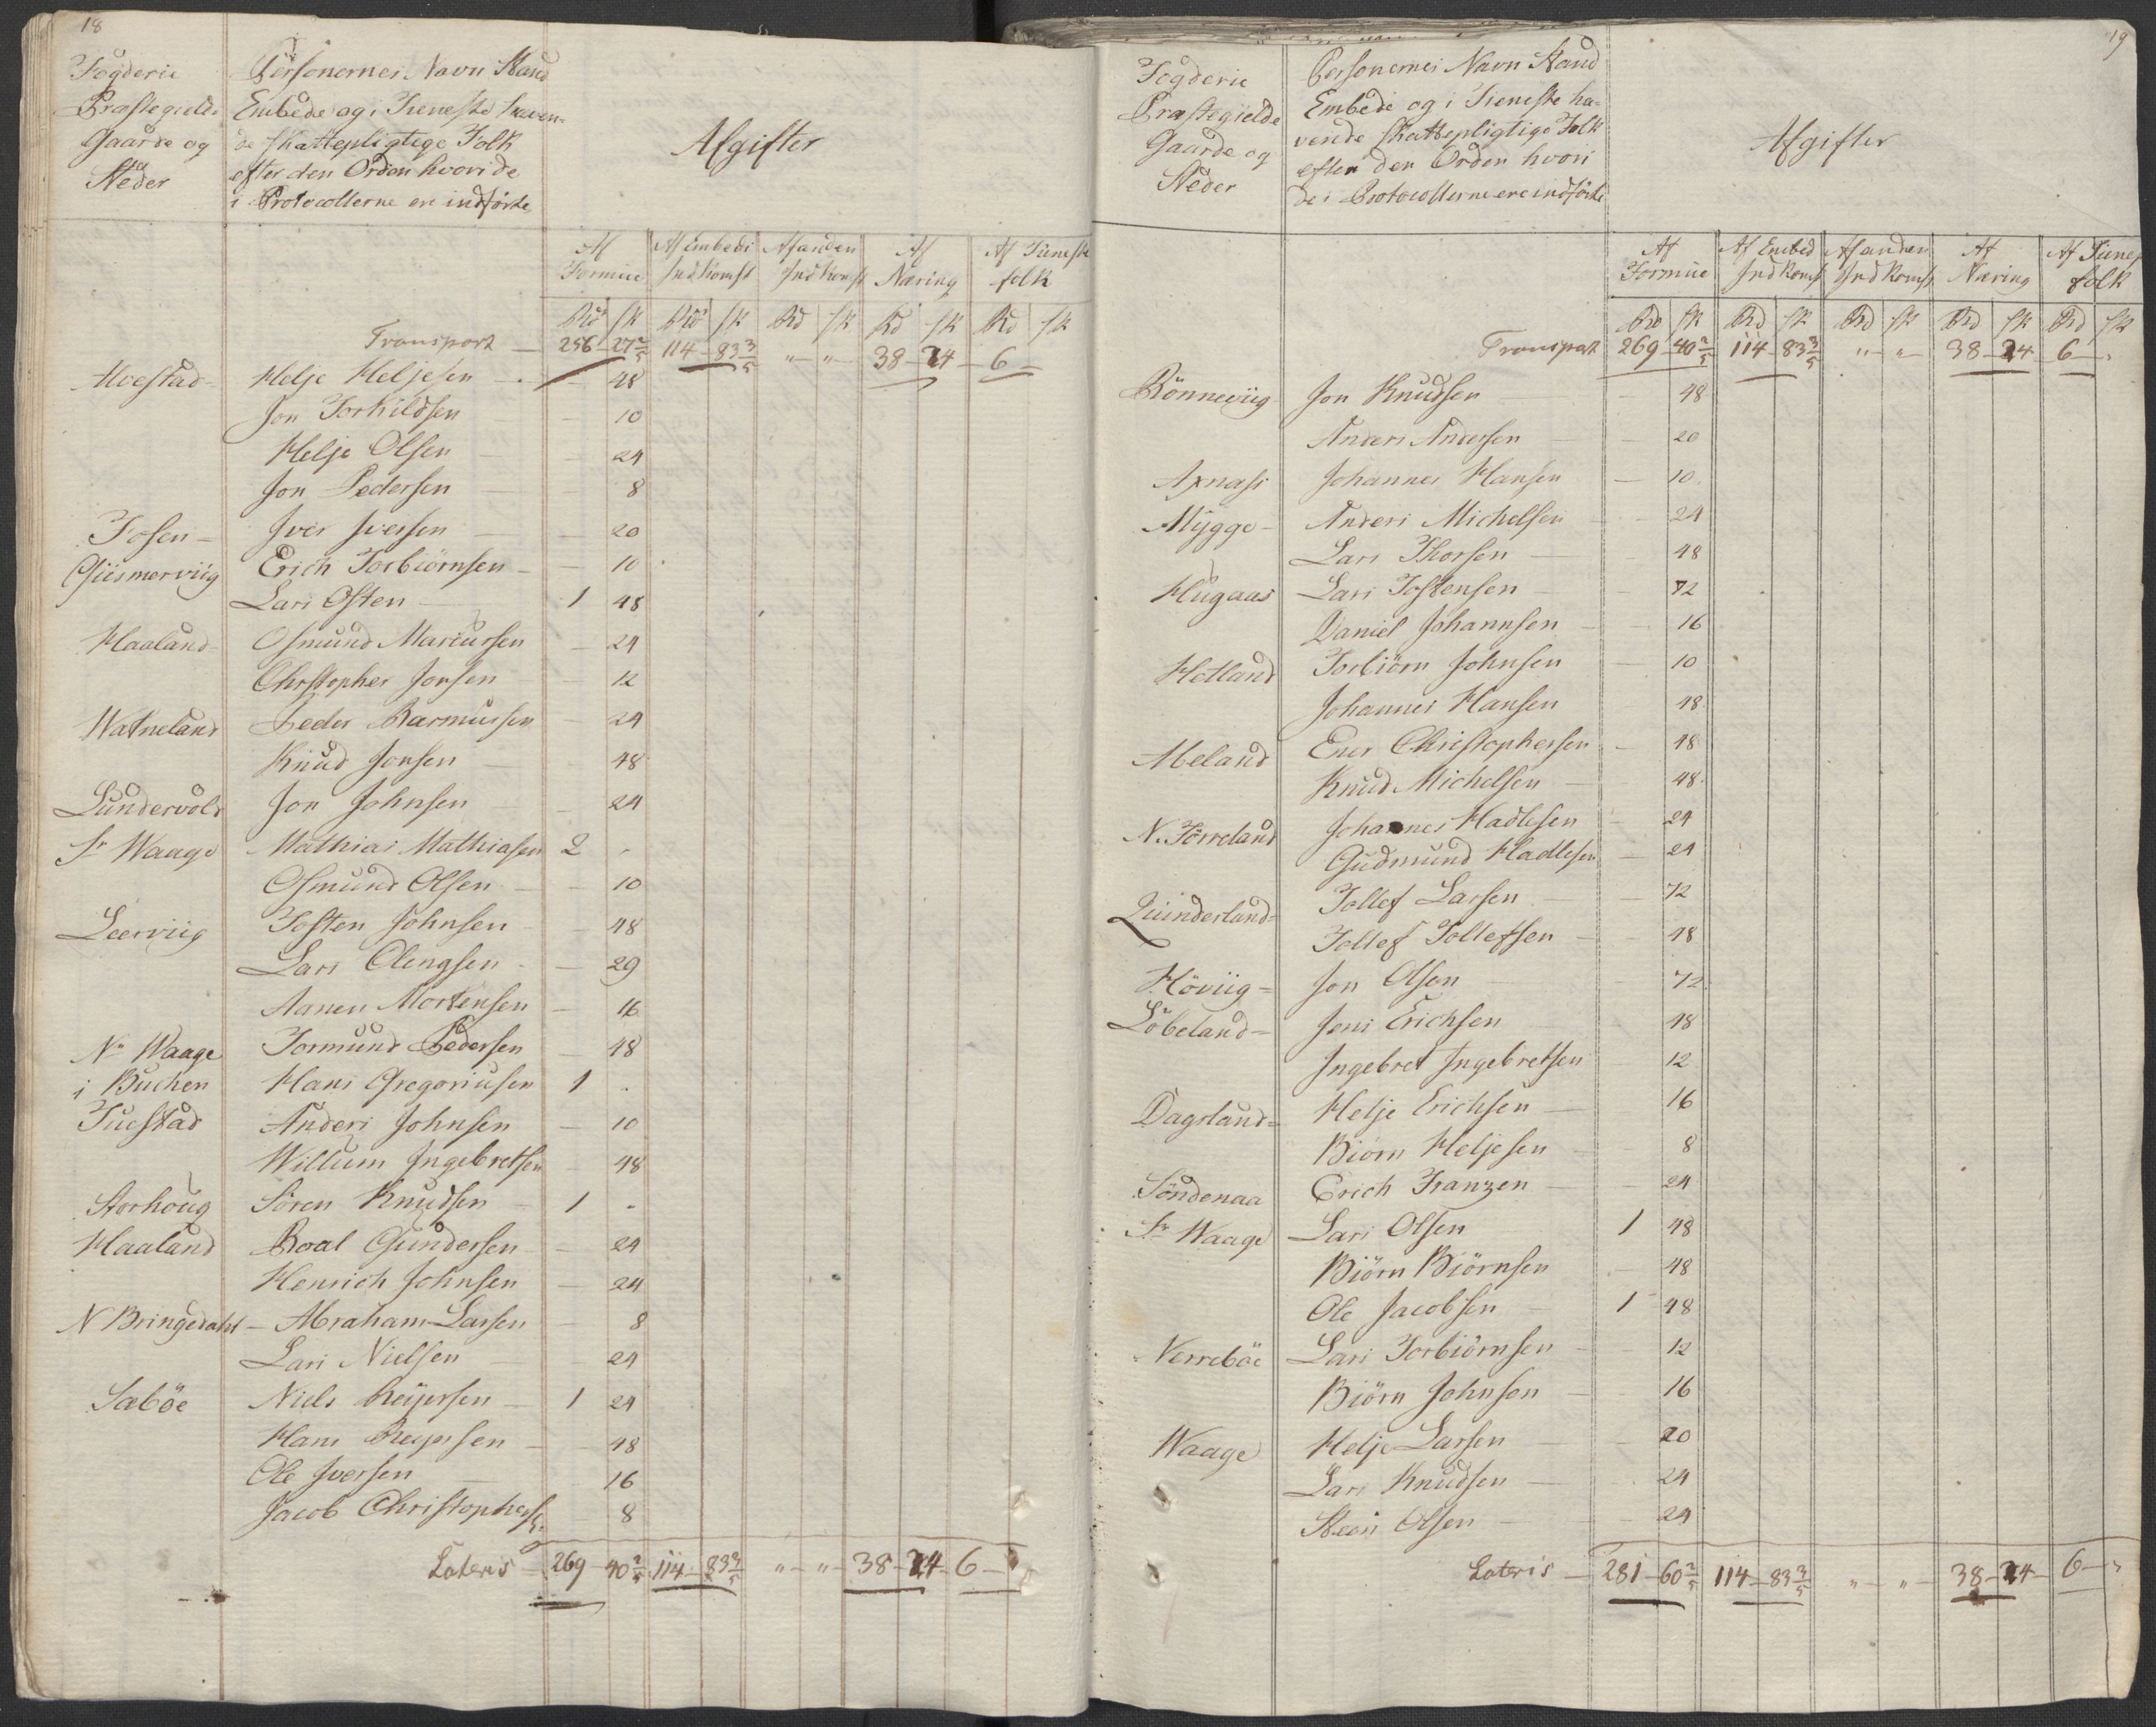 18
Fogderie
Præstegield
Gaarde og
Stæder
Personernes Navn Stand
Embede og i Tieneste haven-
de skattepligtige Folk
efter den Orden hvori de
i Protocollerne ere indförte
Afgifter
Af Formue Af Embeds Indkomst Af anden Indkomst Af Næring Af Tieneste folk
Rd sk Rd sk Rd sk Rd sk Rd sk
Transport — 256 - 27 2/5 114 - 83 3/5 " - " - 38 - 24 - 6 -
Alvestad - Helje Heljesen - 48
Jon Torkildsen - 10
Helje Olsen - 24
Jon Pedersen - 8
Fosen - Iver Iversen - 20
Giismerviig Erich Torbiörnsen - 10
Lars Osten - 1 48
Haaland - Osmund Mariussen - 24
Chrstopher Jonsen - 12
Watneland Peder Rasmussen - 24
Knud Jonsen - 48
Lundervold Jon Johnsen - 24
Sr Waage Mathias Mathiasen 2 -
Osmund Olsen - 10
Leerviig Tosten Johnsen - 48
Lars Olengsen - 29
Aanen Mortensen - 16
Nr Waage Tormund Pedersen - 48
i Buchen Hans Gregoriusen 1 .
Tuestad Anders Johnsen - 10
Willum Ingebretsen - 48
Storhoug Sören Knudsen - 1 -
Haaland Roal Gundersen - 24
Henrich Johnsen - 24
N Bringedahl - Abraham Larsen - 8
Lars Nielsen - 24
Sæböe Niels Reijersen - 1 24
Hans Reijersen - 48
Ole Iversen - 16
Jacob Christophers: - 8
Lateris - 269 - 40 2/5 114 - 83 3/5 " - " - 38 - 24 - 6 -
19
Fogderie
Præstegielde
Gaarde og
Stæder
Personernes Navn Stand
Embede og i Tieneste ha-
vende skattepligtige Folk
efter den Orden hvori
de i Protocollerne ere indförte
Afgifter
Af Formue Af Embed Indkomst Af anden Indkomst Af Næring Af Tienest folk
Rd sk Rd sk Rd sk Rd sk Rd sk
Transport 269 - 40 2/5 114 - 83 3/5 " - " - 38 - 24 6 -
Rönneviig Jon Knudsen - 48
Anders Andersen - 20
Axnass Johannes Hansen - 10
Mÿgge - Anders Michelsen - 24
Lars Thorsen - 48
Hugaas Lars Tostensen - 72
Daniel Johannsen - 16
Hetland Torbiörn Johnsen - 10
Johannes Hansen 48
Meland Ener Christophersen - 48
Knud Michelsen - 48
N. Förreland Johannes Hadlesen - 24
Gudmund Hadlesen - 24
Quinderland= Tollef Larsen - 72
Tollef Tollefsen - 48
Höviig= Jon Olsen - 72
Löbeland= Jens Erichsen 48
Ingebret Ingebretsen 12
Dagsland= Helje Erichsen - 16
Biörn Heljesen - 8
Söndenaa Erich Franzen - 24
Sr Waage Lars Olsen 1 48
Biörn Biörnsen - 48
Ole Jacobsen - 1 48
Nerreböe Lars Torbiörnsen - 12
Biörn Johnsen - 16
Waage Helje Larsen - 20
Lars Knudsen - 24
Steen Olsen - 24
Lateris - 281 - 60 2/5 114 - 83 3/5 " - " - 38 - 24 - 6 - "